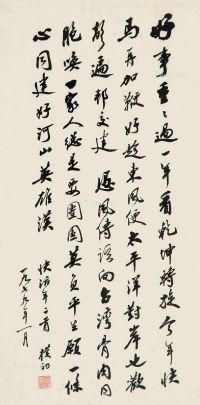 好事重重過一年看乾坤轉旋今年快
馬再加鞭好趁東風便太平洋對岸也歡
顏遍邦交建 遥風傳語向台灣骨肉同
胞喚一家人總是要團圓莫負平生願一條
心同建好河山英雄漢
快活年二首 樸初
一九七九年一月